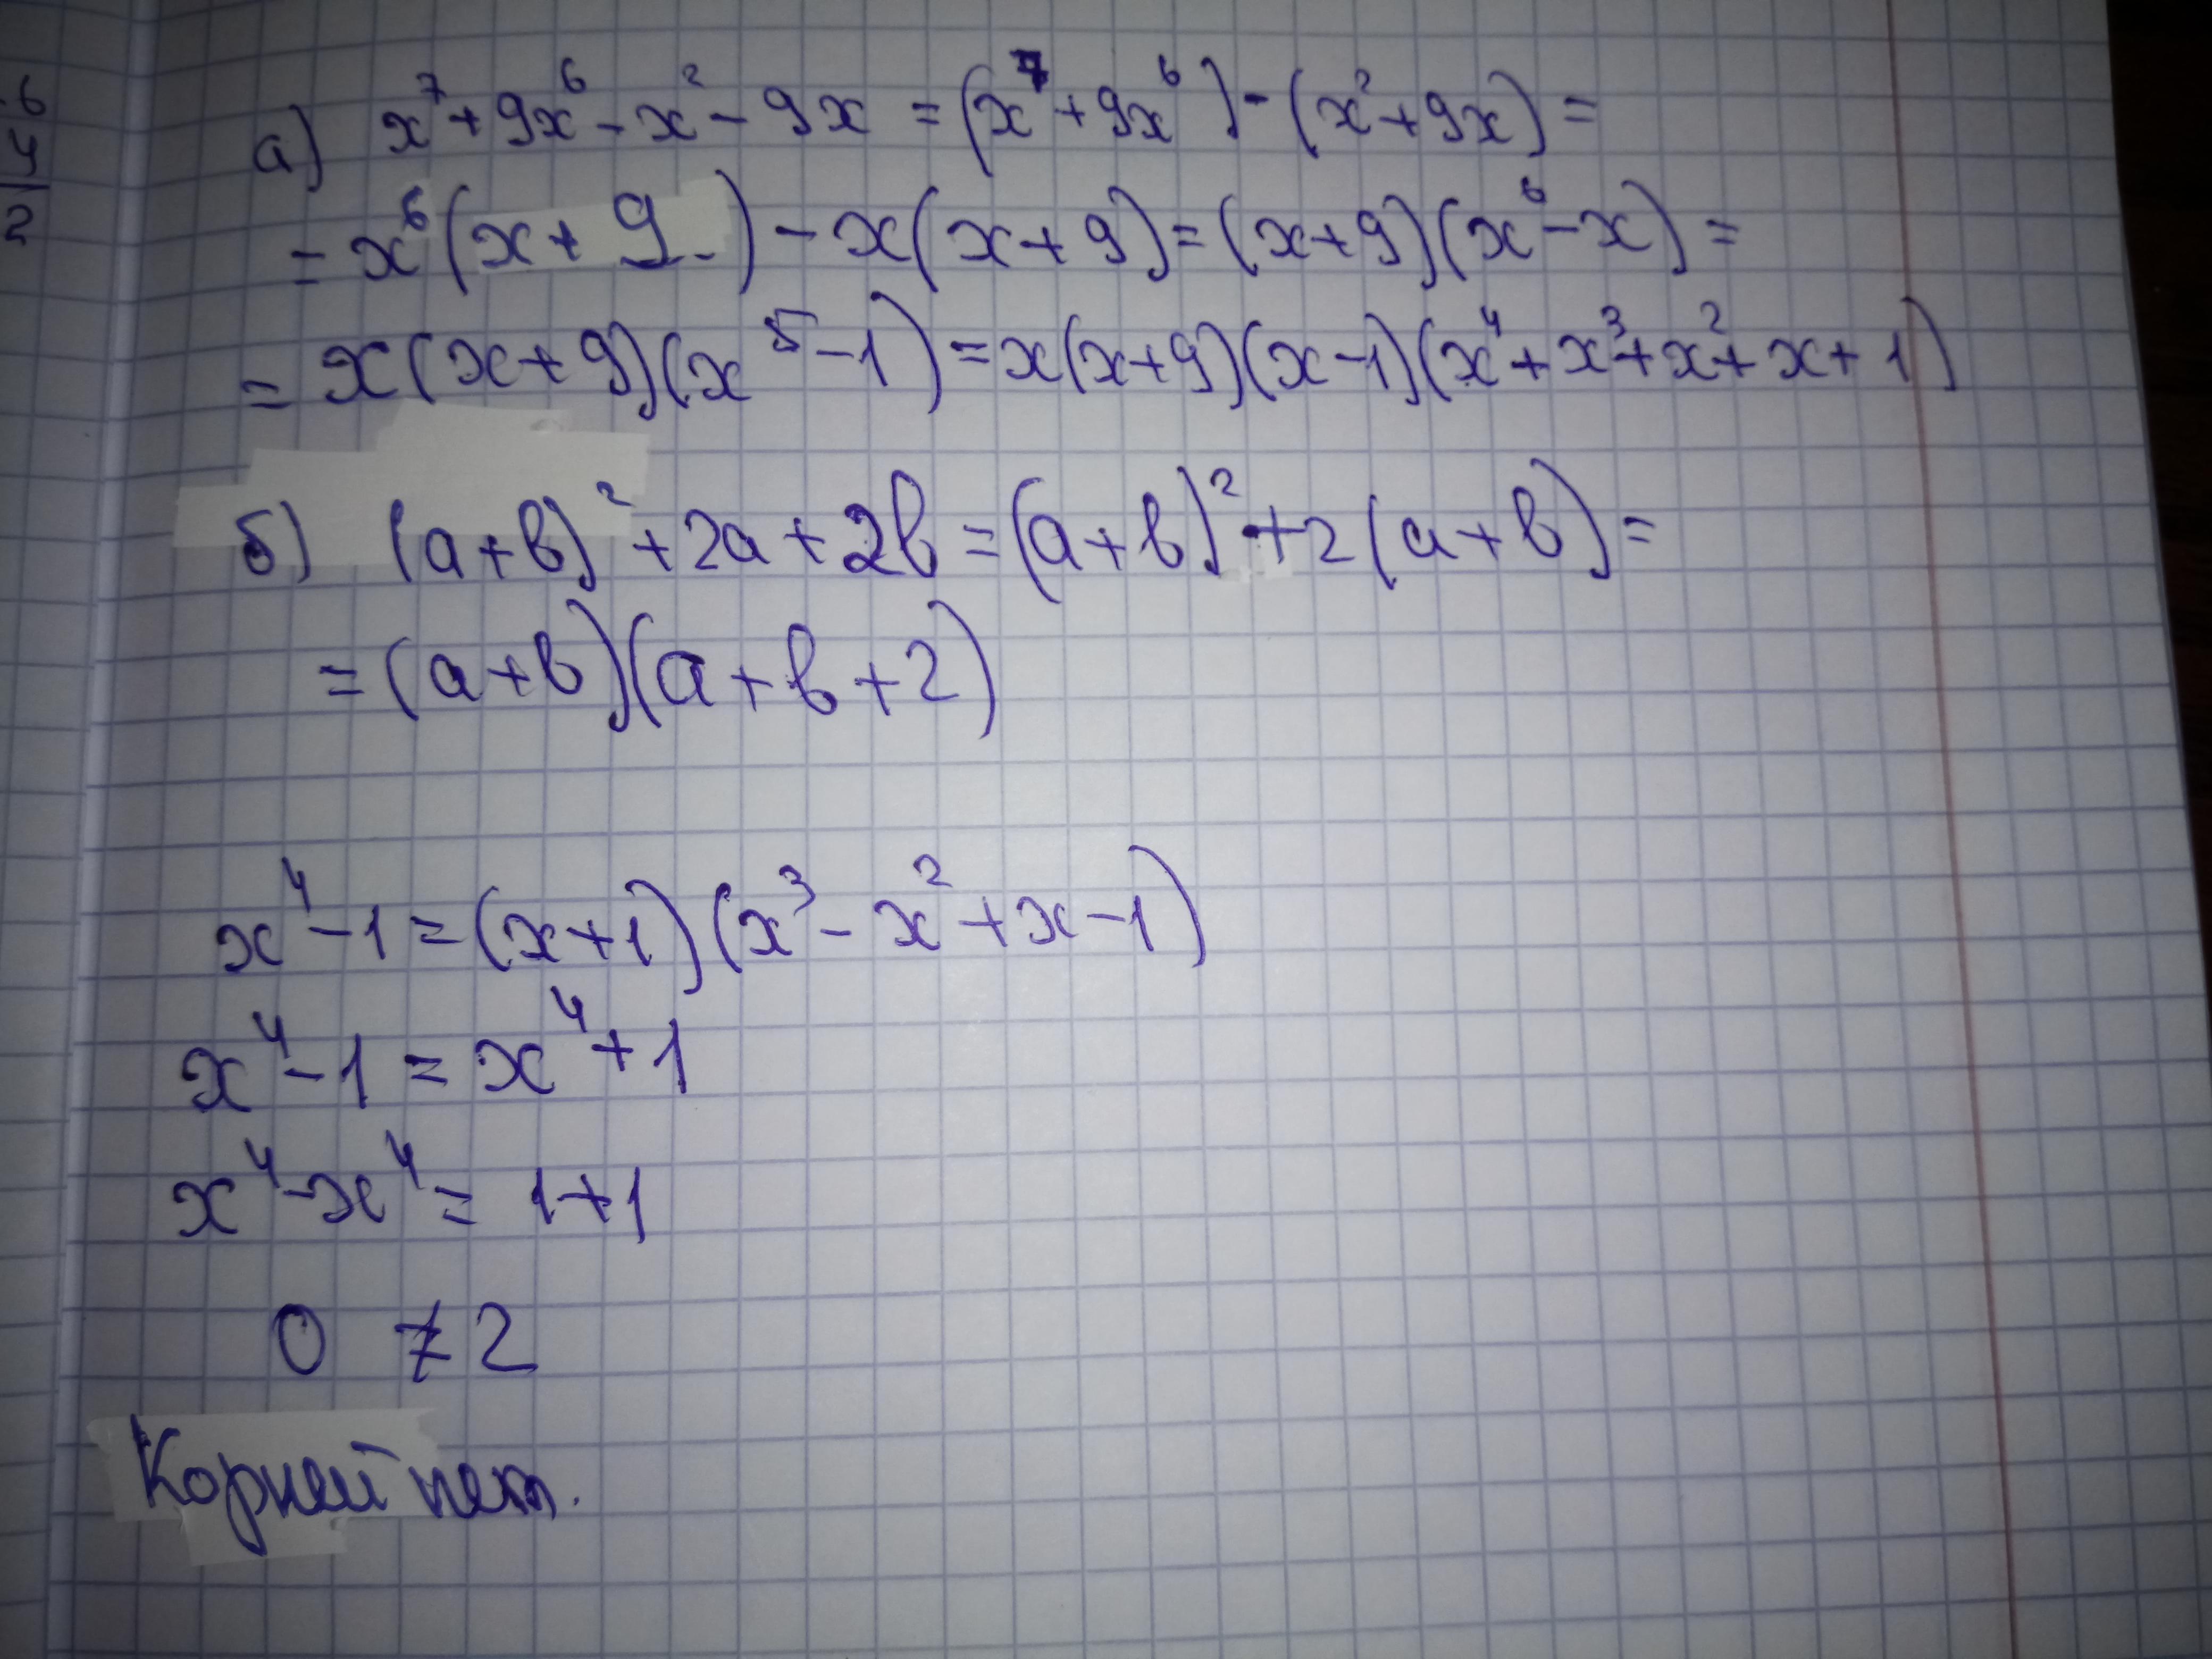 6
4
2
а) x⁷+9x⁶-x²-9x=(x⁷+9x⁶)-(x²+9x)=
=x⁶(x+9)-x(x+9)=(x+9)(x⁶-x)=
=x(x+9)(x⁵-1)=x(x+9)(x-1)(x⁴+x³+x²+x+1)
б) (a+b)²+2a+2b=(a+b)²+2(a+b)=
=(a+b)(a+b+2)
x⁴-1=(x+1)(x³-x²+x-1)
x⁴-1=x⁴+1
x⁴-x⁴=1+1
0≠2
Корней нет.